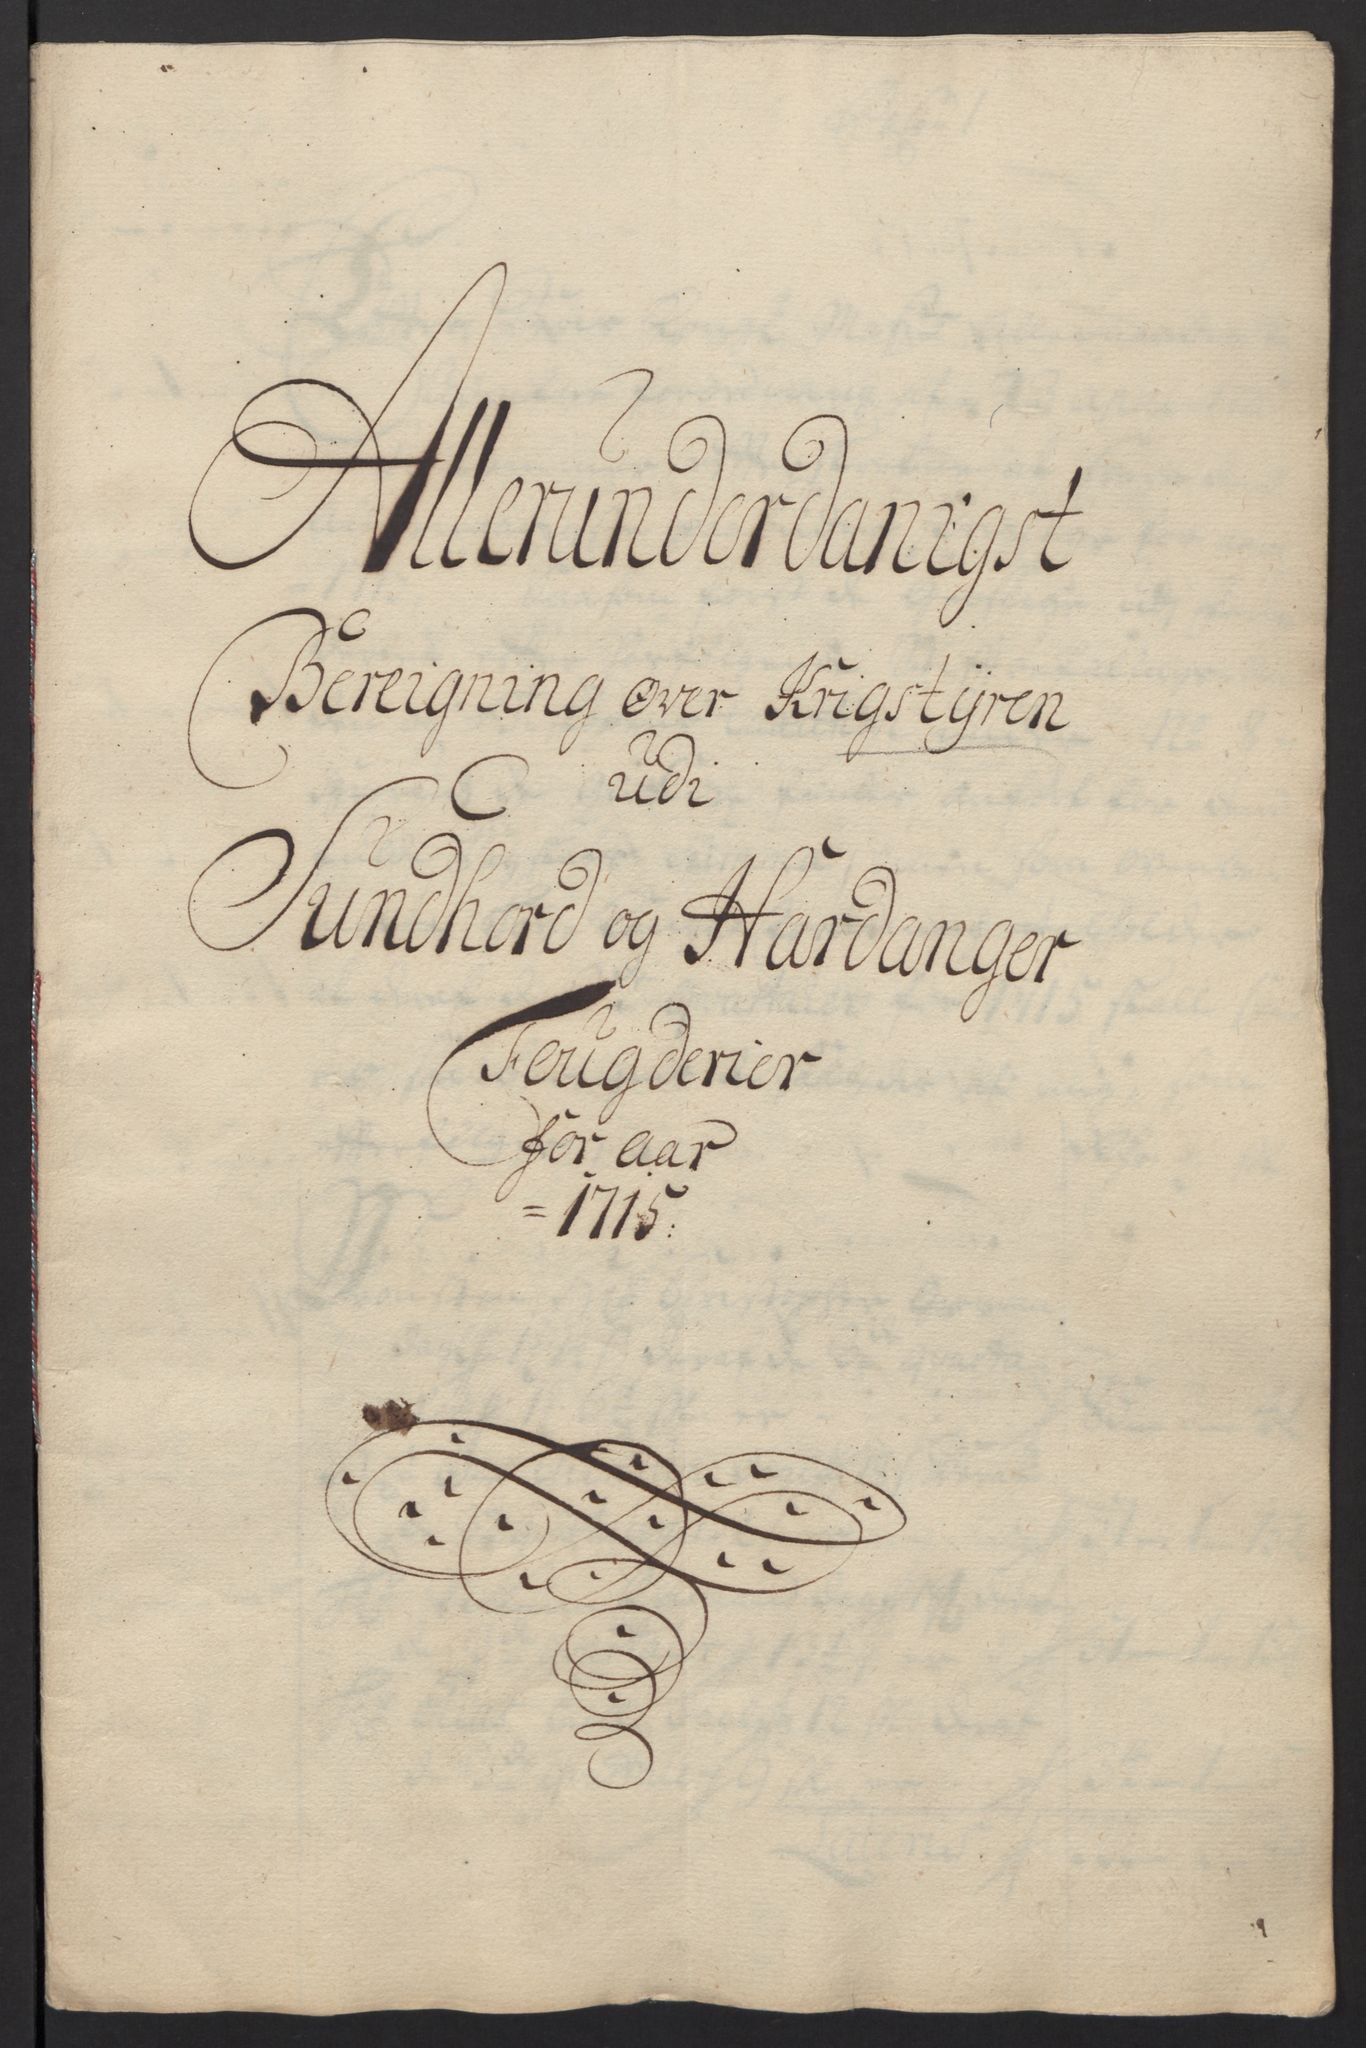 Allerunderdanigst
Bereigning over Krigstÿren
udi
Sundhord og Hardanger
Fougderier
for aar
=1715: